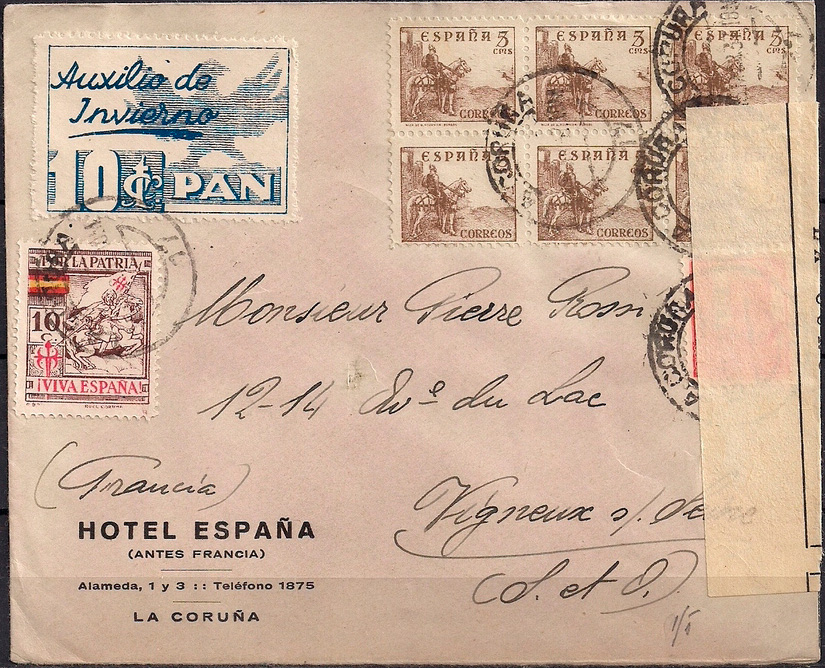 Auxilio de
Invierno
10 C PAN
ESPAÑA 5 CTS
CORREOS
ESPAÑA 5 CTS
CORREOS
ESPAÑA 5 CTS
ESPAÑA
CORREOS
ESPAÑA
CORREOS
CORUÑA
CORUÑA
CORUÑA
CORUÑA
POR LA PATRIA
10
C
¡VIVA ESPAÑA!
Monsieur Pierre Rossi
12-14 Av.e du Lac
(Francia)
Vigneux s/. Seine
(S. et O.)
HOTEL ESPAÑA
(ANTES FRANCIA)
Alameda, 1 y 3 :: Teléfono 1875
LA CORUÑA